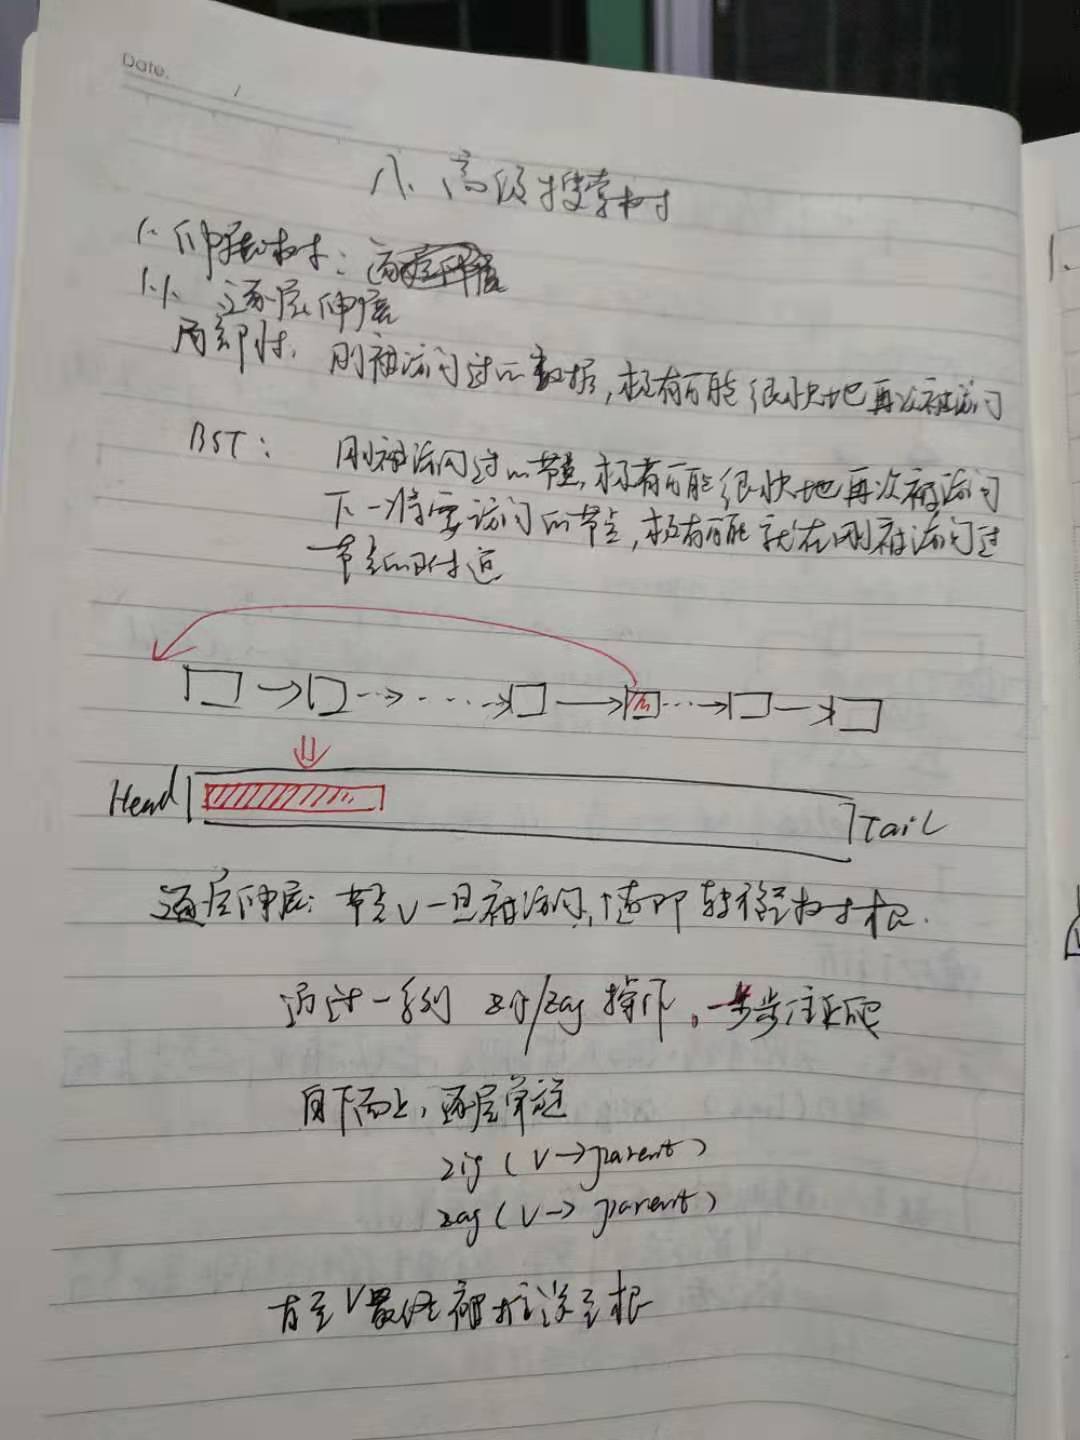 Date.
八、高级搜索树
1. 伸展树：
1.1. 逐层伸展
局部性：刚被访问过的数据，极有可能很快地再次被访问
BST： 刚被访问过的节点，极有可能很快地再次被访问
下一将要访问的节点，极有可能就在刚被访问过
节点的附近
Head
Tail
逐层伸展：节点V一旦被访问，随即转移至树根．
通过一系列 zig/zag 操作，一步步往上爬
自下而上，逐层单旋
zig (V→parent)
zag (V→parent)
直至V最终被推送至根
1.